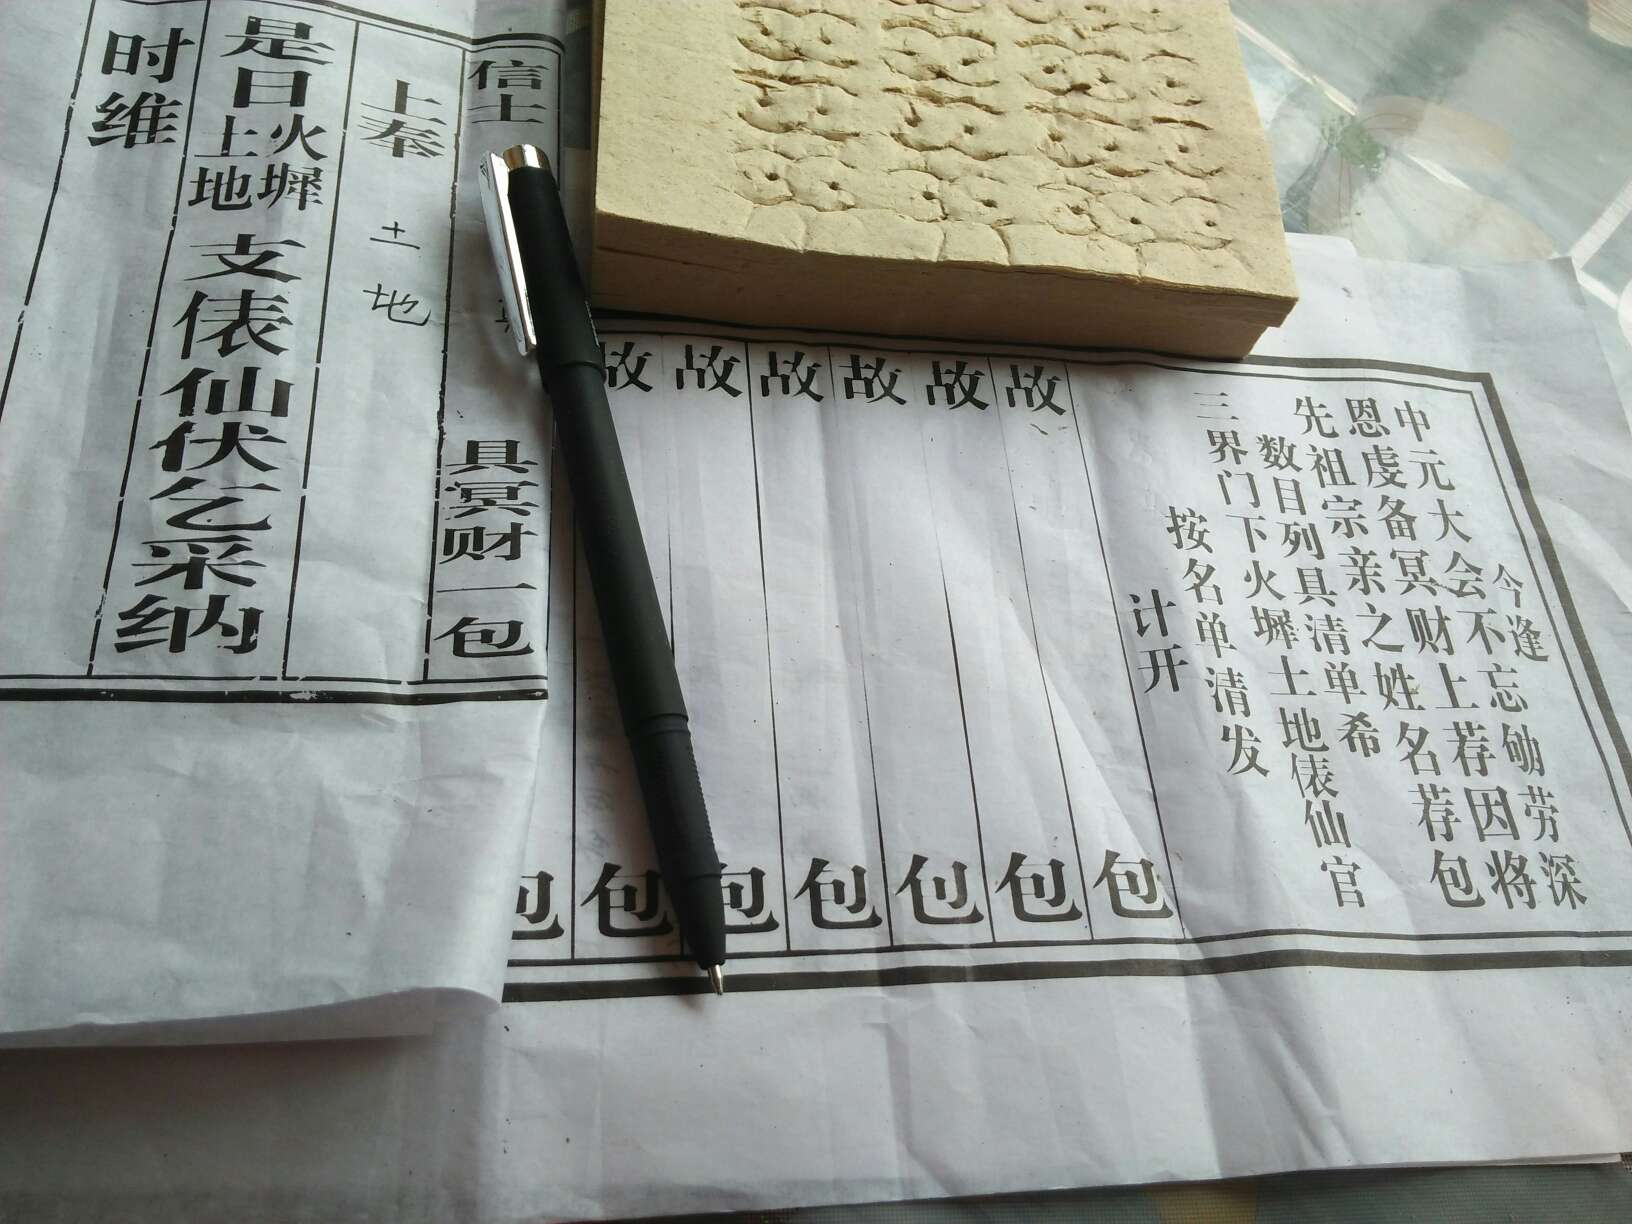 今逢
中元大会不忘劬劳深
恩虔备冥财上荐因将
先祖宗亲之姓名荐包
数目列具清单希
三界门下火墀土地俵仙官
按名单清发
计开
故 包
故 包
故 包
故 包
故 包
故 包
包
信士 具冥财一包
上奉 土地
是日火墀土地支俵仙伏乞采纳
时维